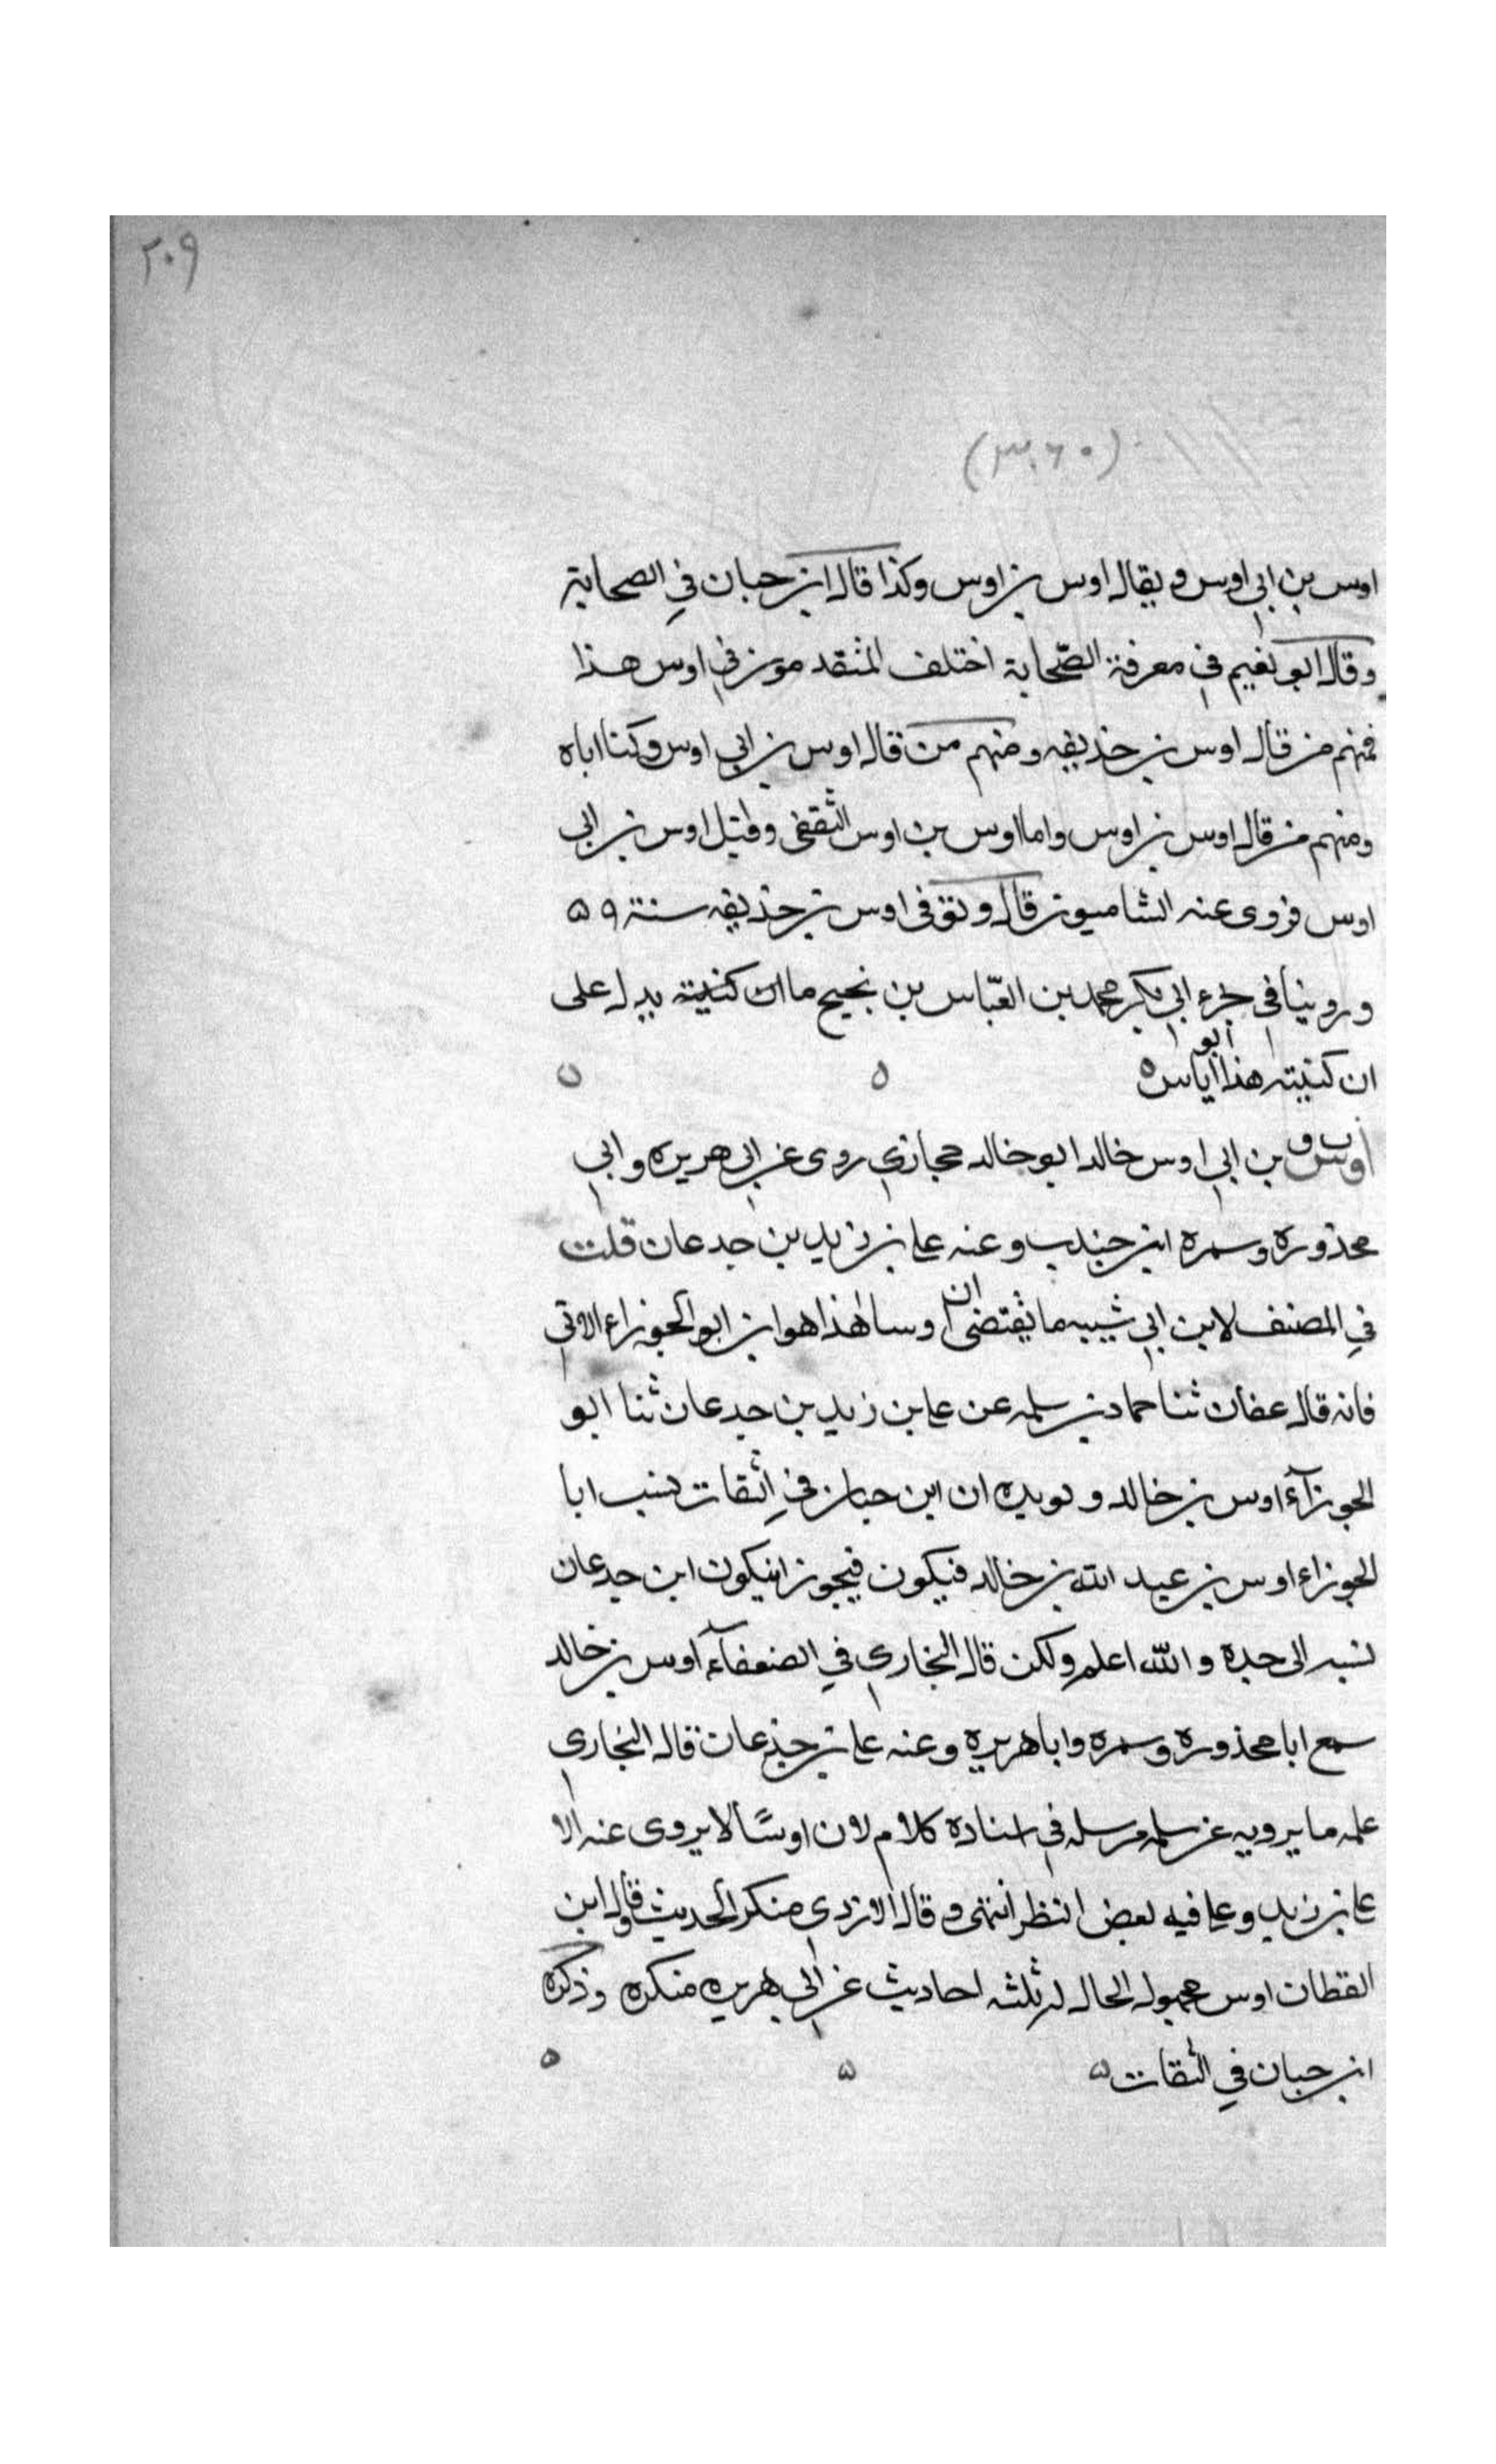 ٢٠٩
(٣٠٦٠)
اوس بن ابي اوس ويقال اوس بن اوس وكذا قال ابن حبان في الصحابة
وقال ابو نعيم في معرفة الصّحابة اختلف المتقدمون في اوس هذا
فمنهم من قال اوس بن حذيفه ومنهم من قال اوس بن ابي اوس وكنا اباه
ومنهم من قال اوس بن اوس واما اوس بن اوس الثقفى وقيل اوس بن ابي
اوس فروى عنه الشاميون قال وتوفى اوس بن حذيفه سنة ٥٩
وروينا في جزء ابي بكر محمد بن العبّاس بن نجيح ما ان كنيته يدل على
ان كنيته هذا ابو اياس ه
بن ابي اوس خالد ابو خالد حجازي روى عن ابي هريره وابي
محذوره وسمره ابن جندب وعنه على بن زيد بن جدعان قلت
في المصنف لابن ابي شيبه ما يقتضى ان اوسا هذا هو ابن ابو الجوزاء الاتى
فانه قال عفان ثنا حماد بن سلمه عن على بن زيد بن جدعان ثنا ابو
الجوزآء اوس بن خالد و يويده ان ابن حبان في الثقات نسب ابا
الجوزاء اوس بن عبد الله بن خالد فيكون فيجوز ان يكون ابن جدعان
نسبه الى جده والله اعلم ولكن قال البخاري في الضعفآء اوس بن خالد
سمع ابا محذوره وسمره وابا هريره وعنه على بن جدعان قال البخارى
علمه ما يرويه عن سلمه مرسله في اسناده كلام لان اوسًا لا يروى عنه الا
على بن زيد وعلى فيه بعض النظر انتهى وقال الازدي منكر الحديث وقال ابن
القطان اوس مجهول الحال له ثلثه احاديث عن ابي هريره منكره وذكره
ابن حبان في الثقات ه